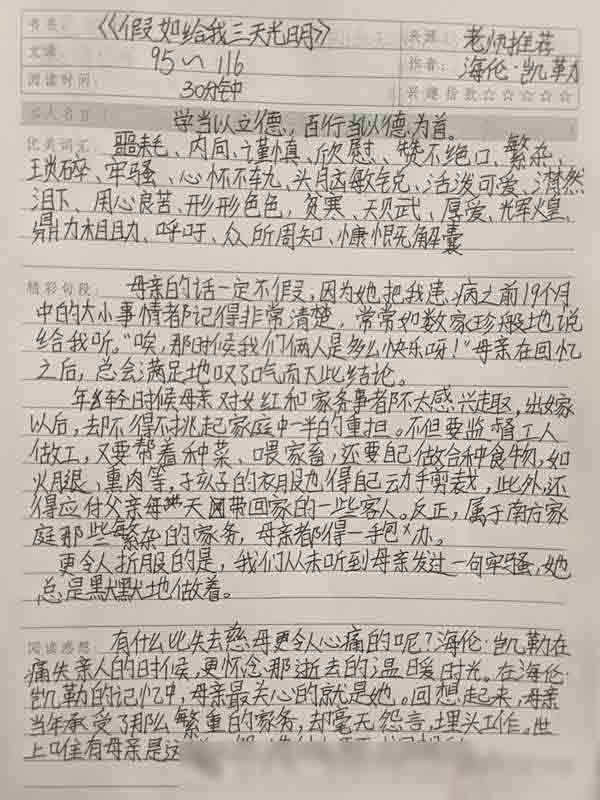 书名：《假如给我三天光明》 来源：老师推荐
页课：95~116 作者：海伦·凯勒
阅读时间：30分钟 兴趣指数☆☆☆☆☆
名人名言： 学当以立德，百行当以德为首。
优美词汇： 噩耗、内向、谨慎、欣慰、赞不绝口、繁杂、
琐碎、牢骚、心怀不轨、头脑敏锐、活泼可爱、潸然
泪下、用心良苦、形形色色，贫寒、天赋、厚爱、辉煌、
鼎力相助、呼吁、众所周知、慷慨解囊
精彩句段： 母亲的话一定不假，因为她把我患病之前19个月
中的大小事情都记得非常清楚，常常如数家珍般地说
给我听。"唉，那时候我们俩人是多么快乐呀！"母亲在回忆
之后，总会满足地叹了口气而下此结论。
年轻时候母亲对女红和家务事都不太感兴趣，出嫁
以后，却不得不挑起家庭中一半的重担。不但要监督工人
做工，又要帮着种菜、喂家畜，还要自己做各种食物，如
火腿、熏肉等，孩子的衣服也得自己动手剪裁，此外，还
得应付父亲每天带回家的一些客人。反正，属于南方家
庭那些繁杂的家务，母亲都得一手包办。
更令人折服的是，我们从未听到母亲发过一句牢骚，她
总是默默地做着。
阅读感想： 有什么比失去慈母更令人心痛的呢？海伦·凯勒在
痛失亲人的时候，更怀念那逝去的温暖时光。在海伦·
凯勒的记忆中，母亲最关心的就是她。回想起来，母亲
当年承受了那么繁重的家务，却毫无怨言，埋头工作。世
上唯有母亲是这